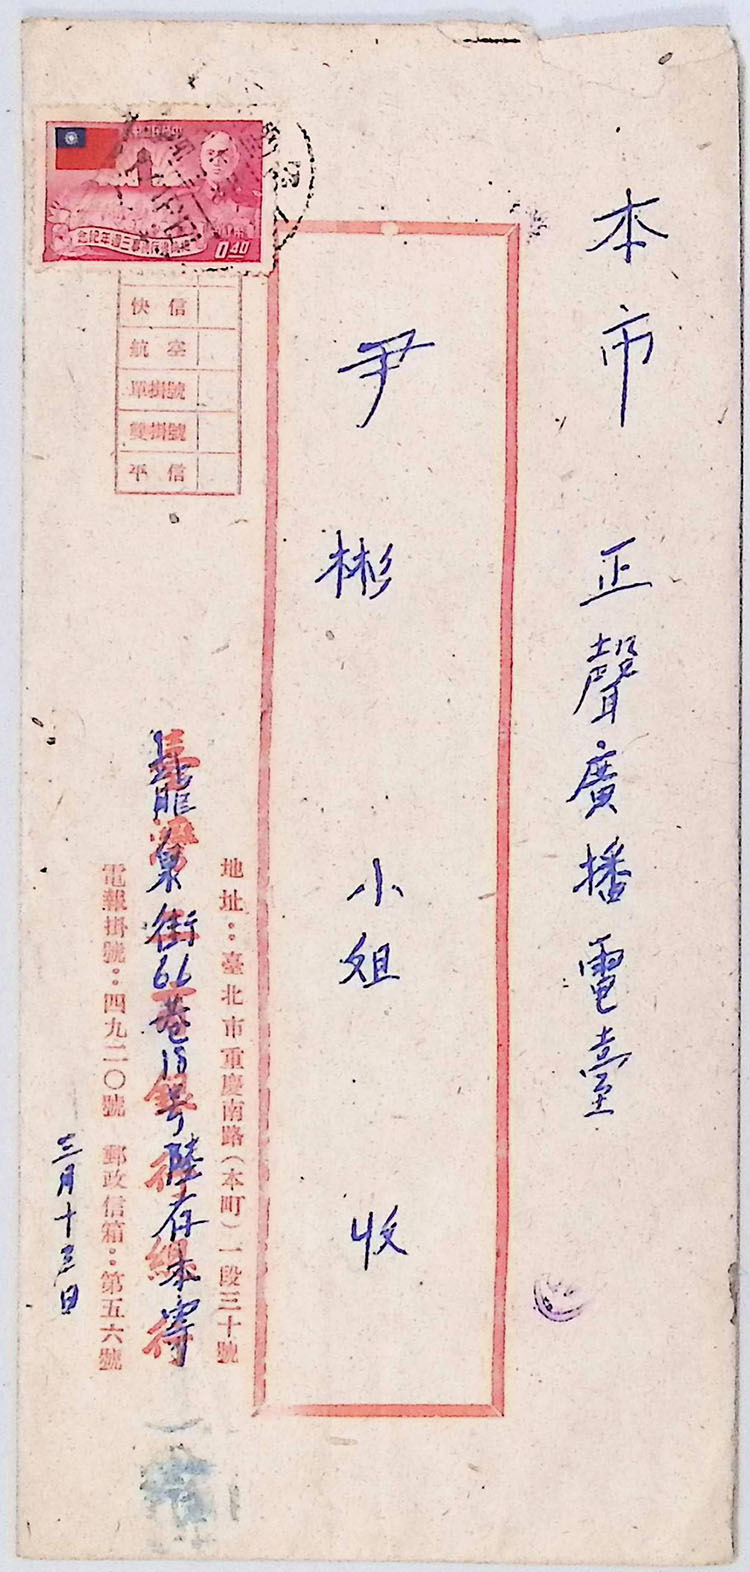 本市 正聲廣播電臺
尹彬 小姐 收
地址：臺北市重慶南路（本町）一段三十號
龍泉街66巷15号陸存本寄
電報掛號：四九二〇號 郵政信箱：第五六號
三月十三日
快信
航空
單掛號
雙掛號
平信
三週年紀念
0.40